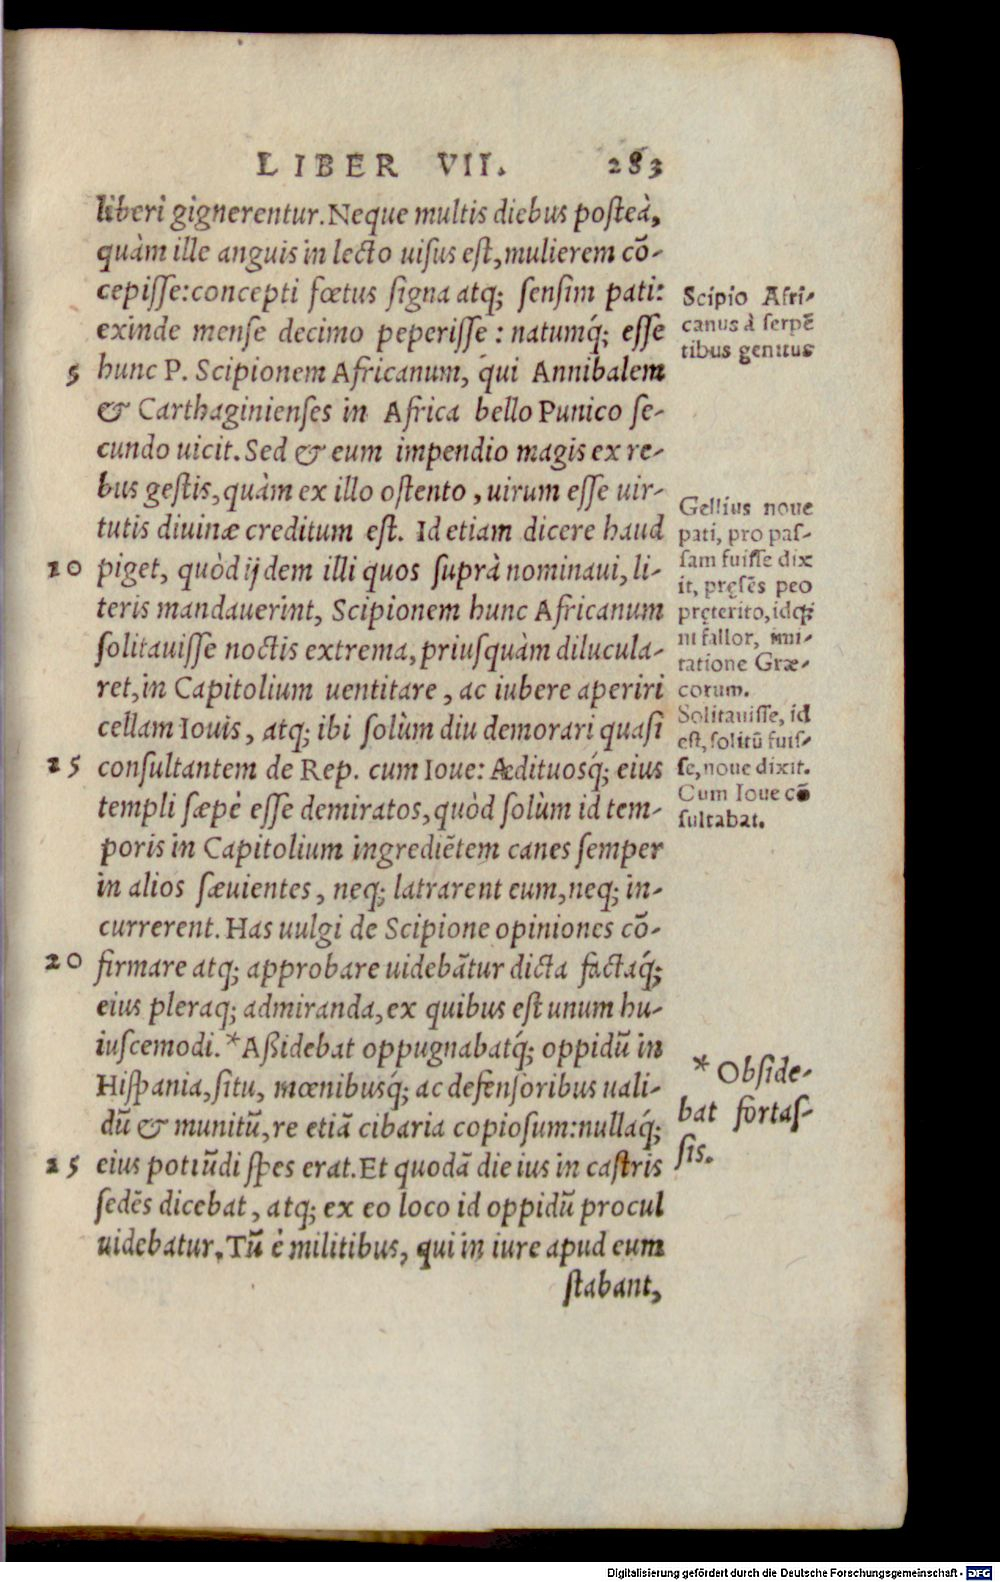 LIBER VII. 283
liberi gignerentur. Neque multis diebus posteà,
quàm ille anguis in lecto uisus est, mulierem cō-
cepisse: concepti fœtus signa atq; sensim pati:
exinde mense decimo peperisse: natumq́; esse
5 hunc P. Scipionem Africanum, qui Annibalem
& Carthaginienses in Africa bello Punico se-
cundo uicit. Sed & eum impendio magis ex re-
bus gestis, quàm ex illo ostento, uirum esse uir-
tutis diuinæ creditum est. Id etiam dicere haud
10 piget, quòd ijdem illi quos suprà nominaui, li-
teris mandauerint, Scipionem hunc Africanum
solitauisse noctis extrema, priusquàm dilucula-
ret, in Capitolium uentitare, ac iubere aperiri
cellam Iouis, atq; ibi solùm diu demorari quasi
15 consultantem de Rep. cum Ioue: Ædituosq́; eius
templi sæpè esse demiratos, quòd solùm id tem-
poris in Capitolium ingrediētem canes semper
in alios sæuientes, neq; latrarent eum, neq; in-
currerent. Has uulgi de Scipione opiniones cō-
20 firmare atq; approbare uidebātur dicta factaq́;
eius pleraq; admiranda, ex quibus est unum hu-
iuscemodi. *Aßidebat oppugnabatq́; oppidū in
Hispania, situ, mœnibusq́; ac defensoribus uali-
dū & munitū, re etiā cibaria copiosum: nullaq́;
25 eius potiūdi spes erat. Et quodā die ius in castris
sedēs dicebat, atq; ex eo loco id oppidū procul
uidebatur. Tū è militibus, qui in iure apud eum
stabant,
Scipio Afri-
canus à serpē
tibus genitus
Gellius noue
pati, pro pas-
sam fuisse dix
it, pręsēs pro
pręterito, idq́;
ni fallor, imi-
tatione Græ-
corum.
Solitauisse, id
est, solitū fuis-
se, noue dixit.
Cum Ioue cō
sultabat.
* Obside-
bat fortas-
sis.
Digitalisierung gefördert durch die Deutsche Forschungsgemeinschaft - DFG